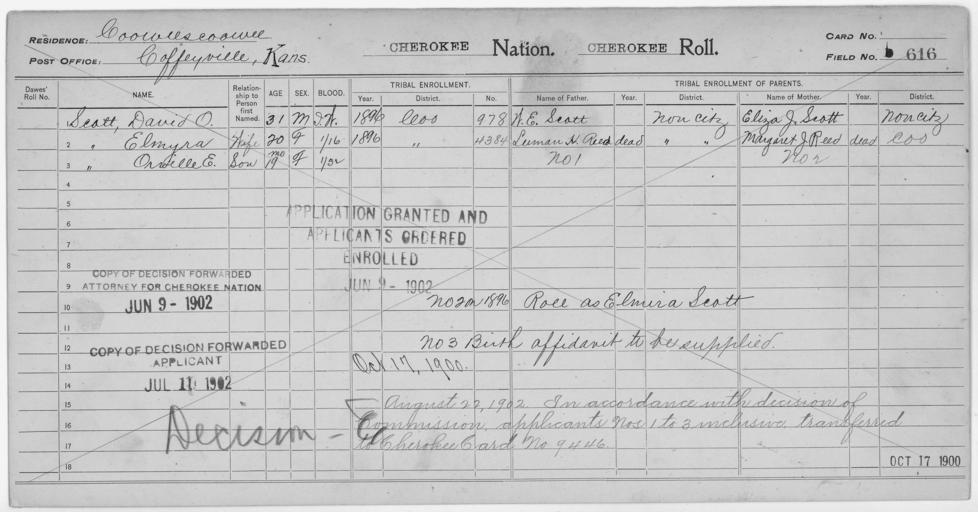 RESIDENCE: Coowescoowee
POST OFFICE: Coffeyville, Kans.
CHEROKEE Nation. CHEROKEE Roll.
CARD NO.
FIELD NO. 616
Dawes' Roll No. NAME. Relationship to Person first Named. AGE SEX. BLOOD. TRIBAL ENROLLMENT. Year. District. No. TRIBAL ENROLLMENT OF PARENTS. Name of Father. Year. District. Name of Mother. Year. District.
Scott, David O. 31 M I.W. 1896 Coo 978 W. E. Scott Non citz Eliza J. Scott Non citz
2 " Elmyra Wife 20 F 1/16 1896 " 4384 Luman H. Reed dead " " Margaret J. Reed dead Coo
3 " Orville E. Son 19 mo 1/32 No 1 No 2
4
5
6
7
8
9
10
11
12
13
14
15
16
17
18
APPLICATION GRANTED AND
APPLICANTS ORDERED
ENROLLED
JUN 9 - 1902
COPY OF DECISION FORWARDED
ATTORNEY FOR CHEROKEE NATION
JUN 9 - 1902
No 2 on 1896 Roll as Elmira Scott
No 3 Birth affidavit to be supplied.
Oct 17, 1900.
COPY OF DECISION FORWARDED
APPLICANT
JUL 11 1902
August 22, 1902. In accordance with decision of
Commission, applicants Nos 1 to 3 inclusive transferred
to Cherokee Card No 9446.
Decision -
OCT 17 1900